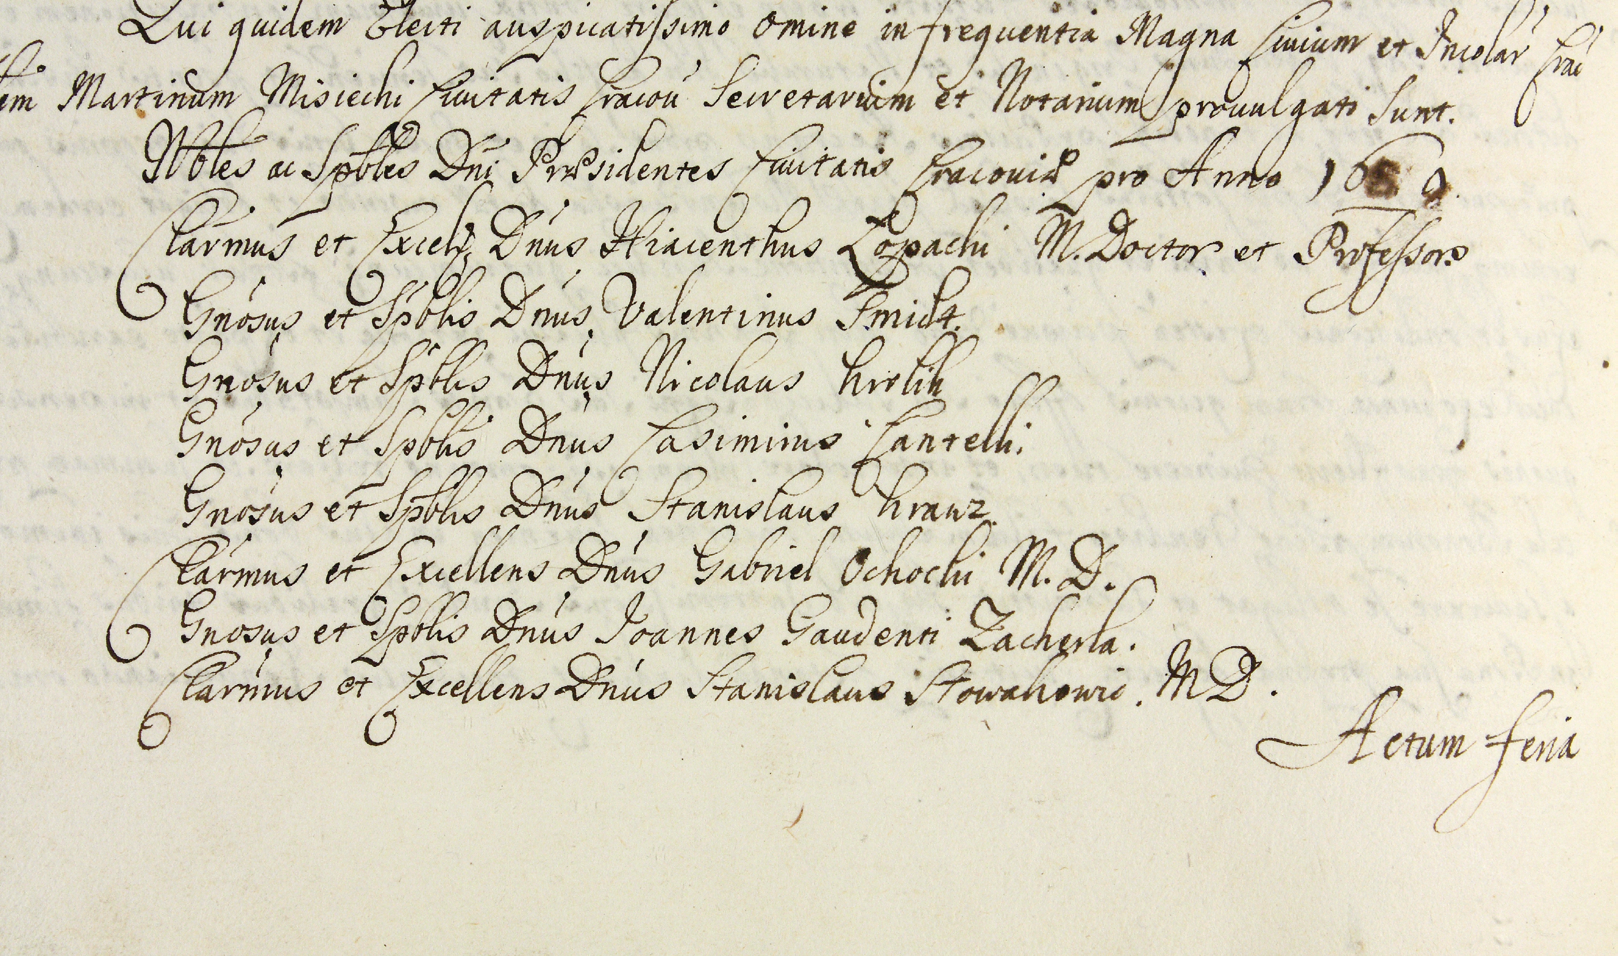 Qui quidem Electi auspicatissimo omine in frequentia Magna Civium et Incolar Crac
em Martinum Misiecki Civitatis Cracou Secretarium et Notarium provulgati sunt.
Nobles ac Spbles Dni Præsidentes Civitatis Cracoviæ pro Anno
Clarmus et Excell Dnus Hiacenthus Łopacki M. Doctor et Professor
Gnosus et Spblis Dnus Valentinus Smidt.
Gnosus et Spblis Dnus Nicolaus Krolik
Gnosus et Spblis Dnus Casimirus Cantelli.
Gnosus et Spblis Dnus Stanislaus Krauz.
Clarmus et Excellens Dnus Gabriel Ochocki M. D.
Gnosus et Spblis Dnus Joannes Gaudenti Zacherla.
Clarmus et Excellens Dnus Stanislaus Słowakowic. MD.
Actum feria